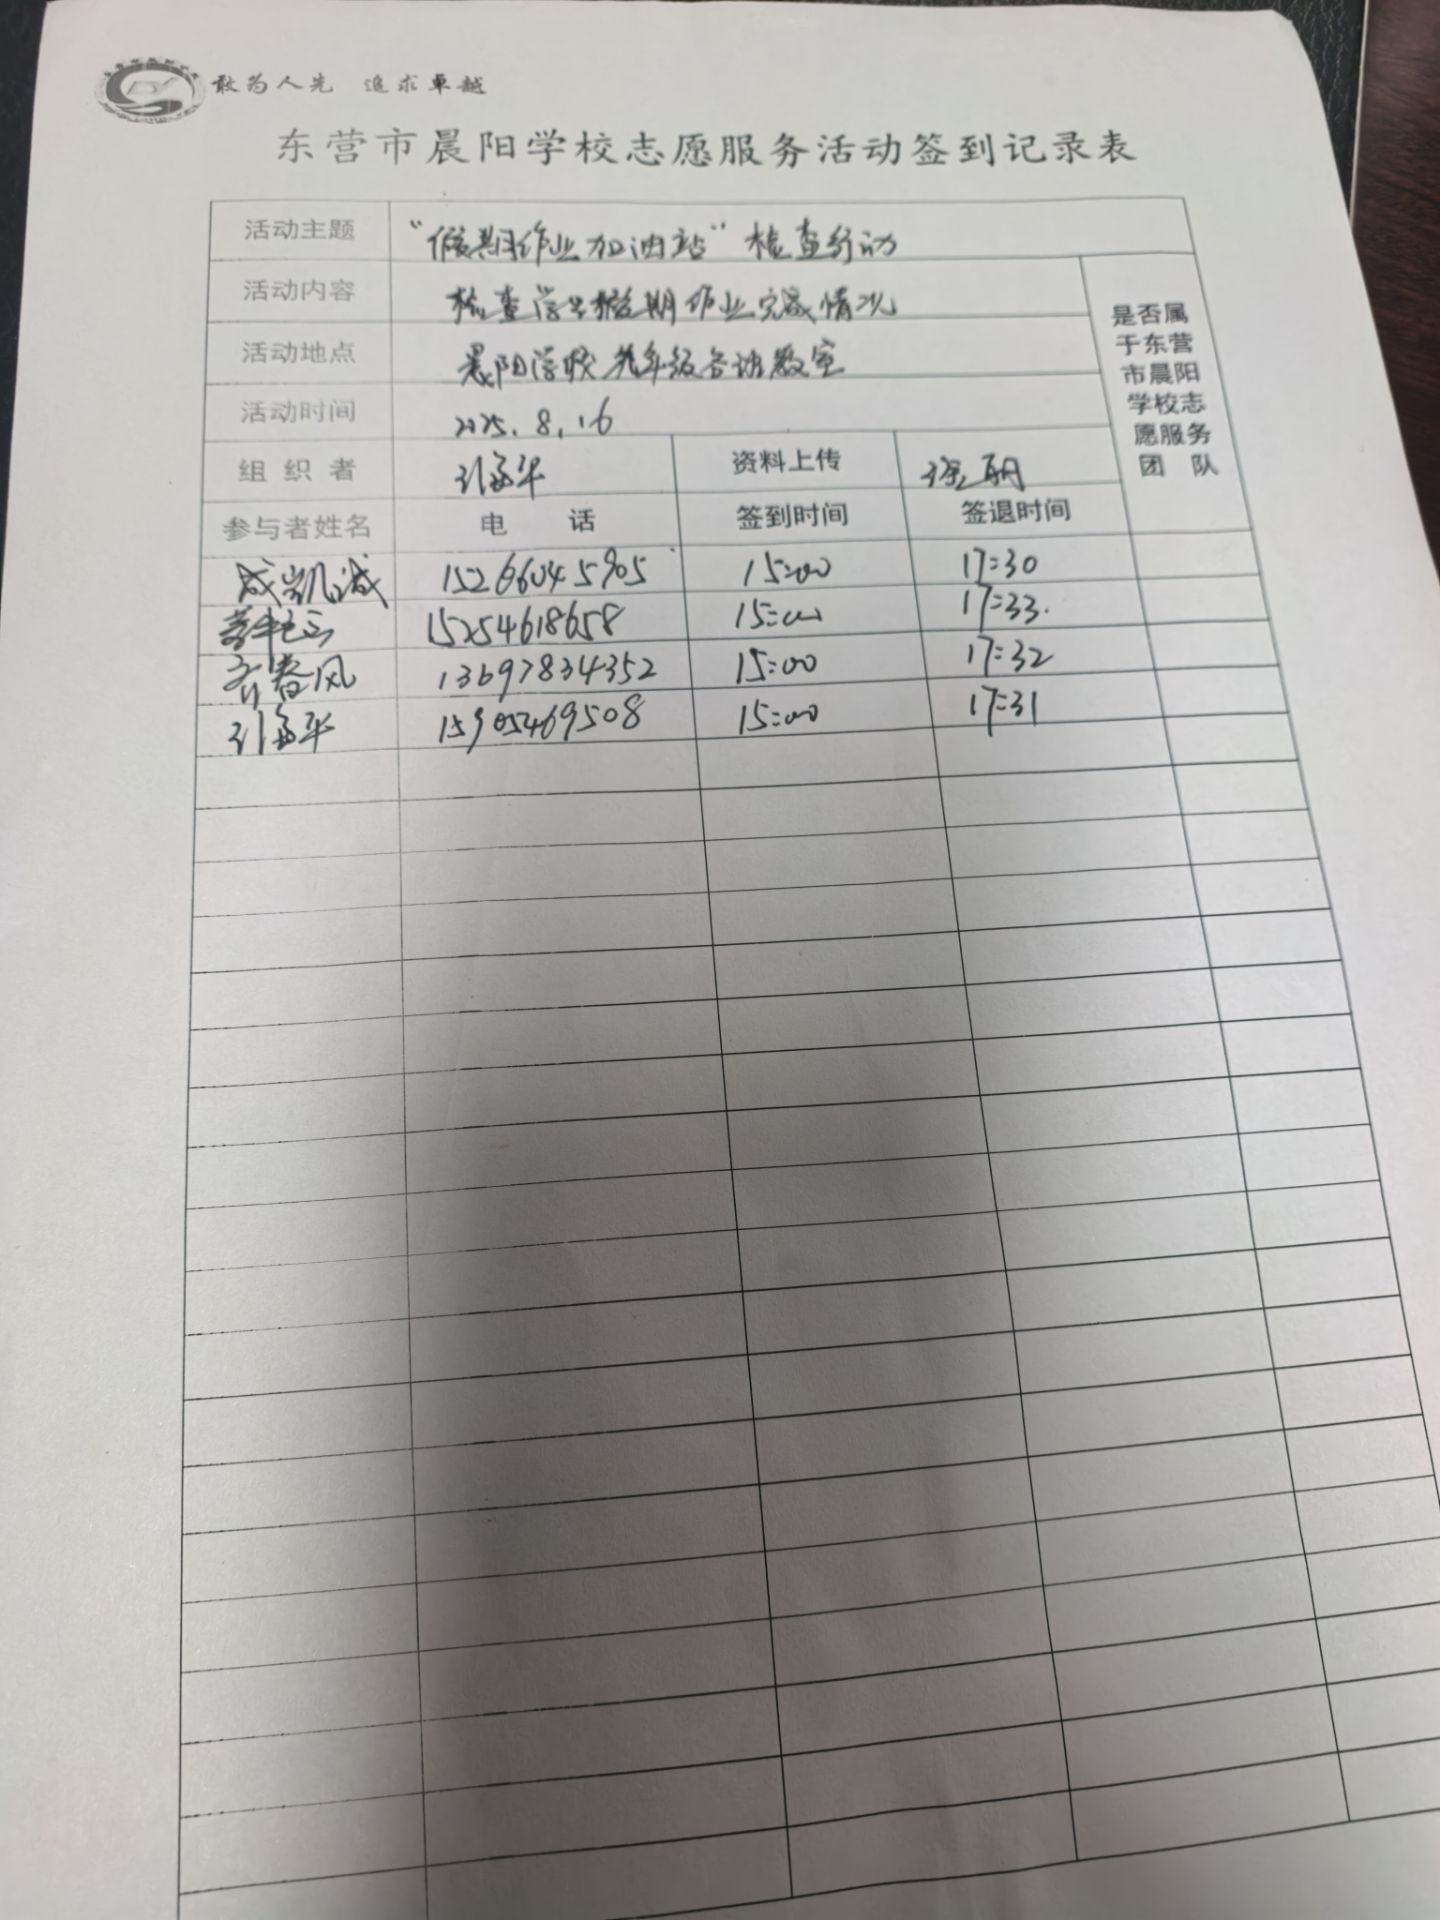 敢为人先 追求卓越
东营市晨阳学校志愿服务活动签到记录表
活动主题 “假期作业加油站”检查行动
活动内容 检查学生假期作业完成情况
活动地点 晨阳学校九年级各班教室
活动时间 2025.8.16
是否属于东营市晨阳学校志愿服务团队
组织者 资料上传
参与者姓名 电话 签到时间 签退时间
成凯诚 15266045905 15:00 17:30
15254618658 15:00 17:33.
齐春风 13697834352 15:00 17:32
15905469508 15:00 17:31